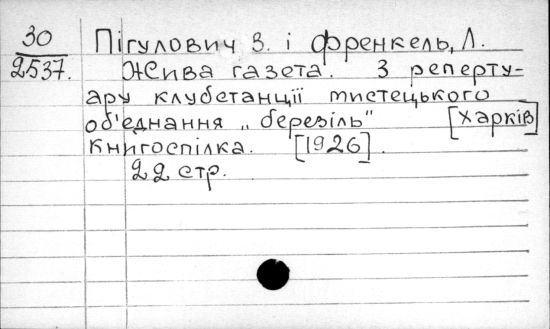 30 Пігулович З. і Френкель, Л.
2537. Жива газета. З реперту-
ару клубстанції мистецького
об'єднання „березіль" [Харків]
Книгоспілка. [1926].
22 стр.